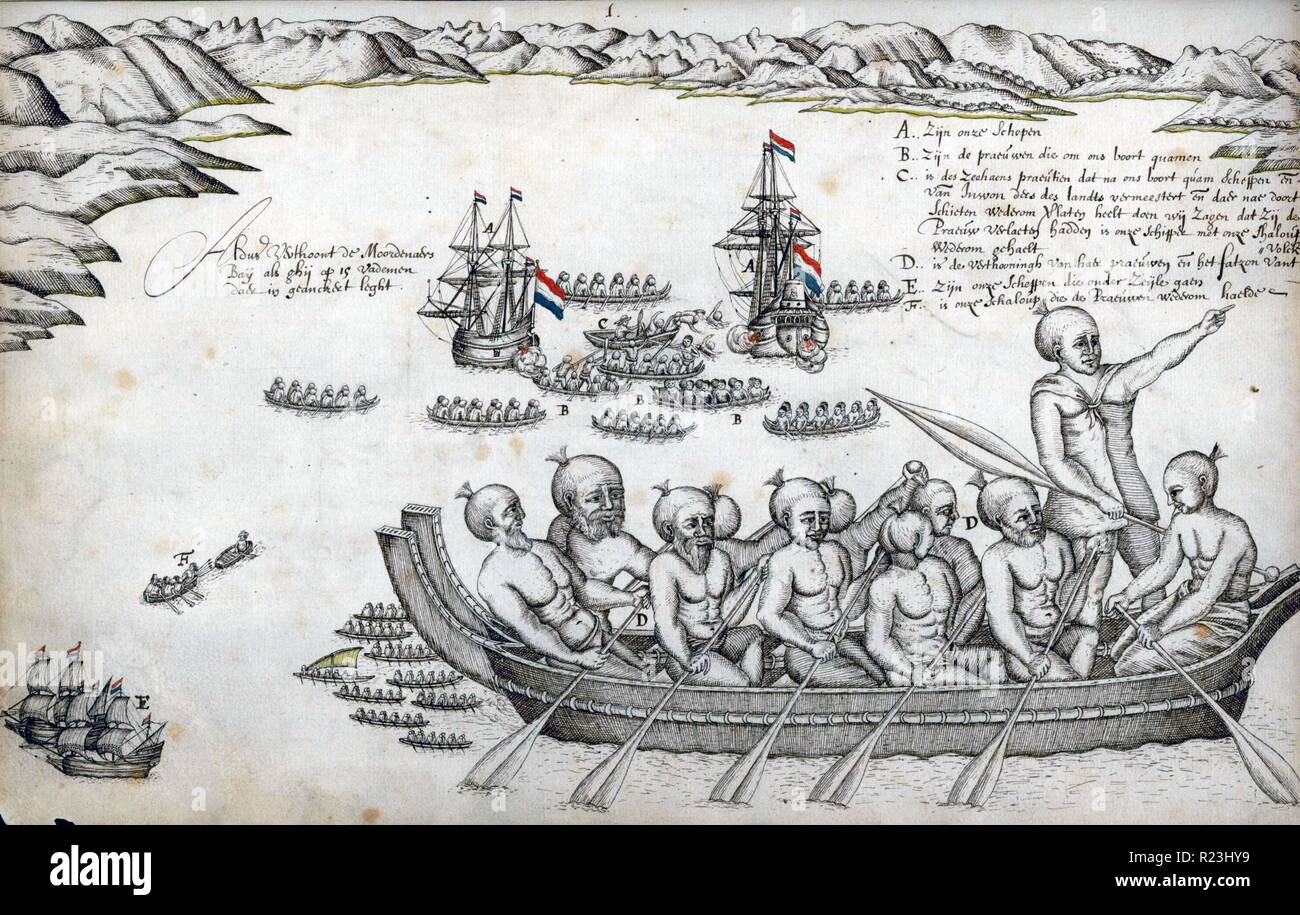 1.
A.. Zijn onze Schepen
B.. Zijn de praeuwen die om ons boort quamen
C.. is des Zeehaens praeutien dat na ons boort quam Scheppen en
van Inwon ders des landts vermeestert en daer nae door't
Schieten wederom Verlaten heelt doen wij Zagen dat Zij de
Praeuw verlaeten hadden is onze Schipper met onze Shaloup
wederom gehaelt
D.. is de verthooningh van haer praeuwen en het fatzon vant Volck
E.. Zijn onze Schepen die onder Zeijle gaen
F.. is onze Schaloup die de Praeuwen wederom haelde
Aldus Verthoont de Moordenaers
Baij als ghij op 15 vademen
daer in geanckert leght.
A
A
C
B
B
B
D
D
F
E
a
alamy
alamy
Image ID: R23HY9
www.alamy.com